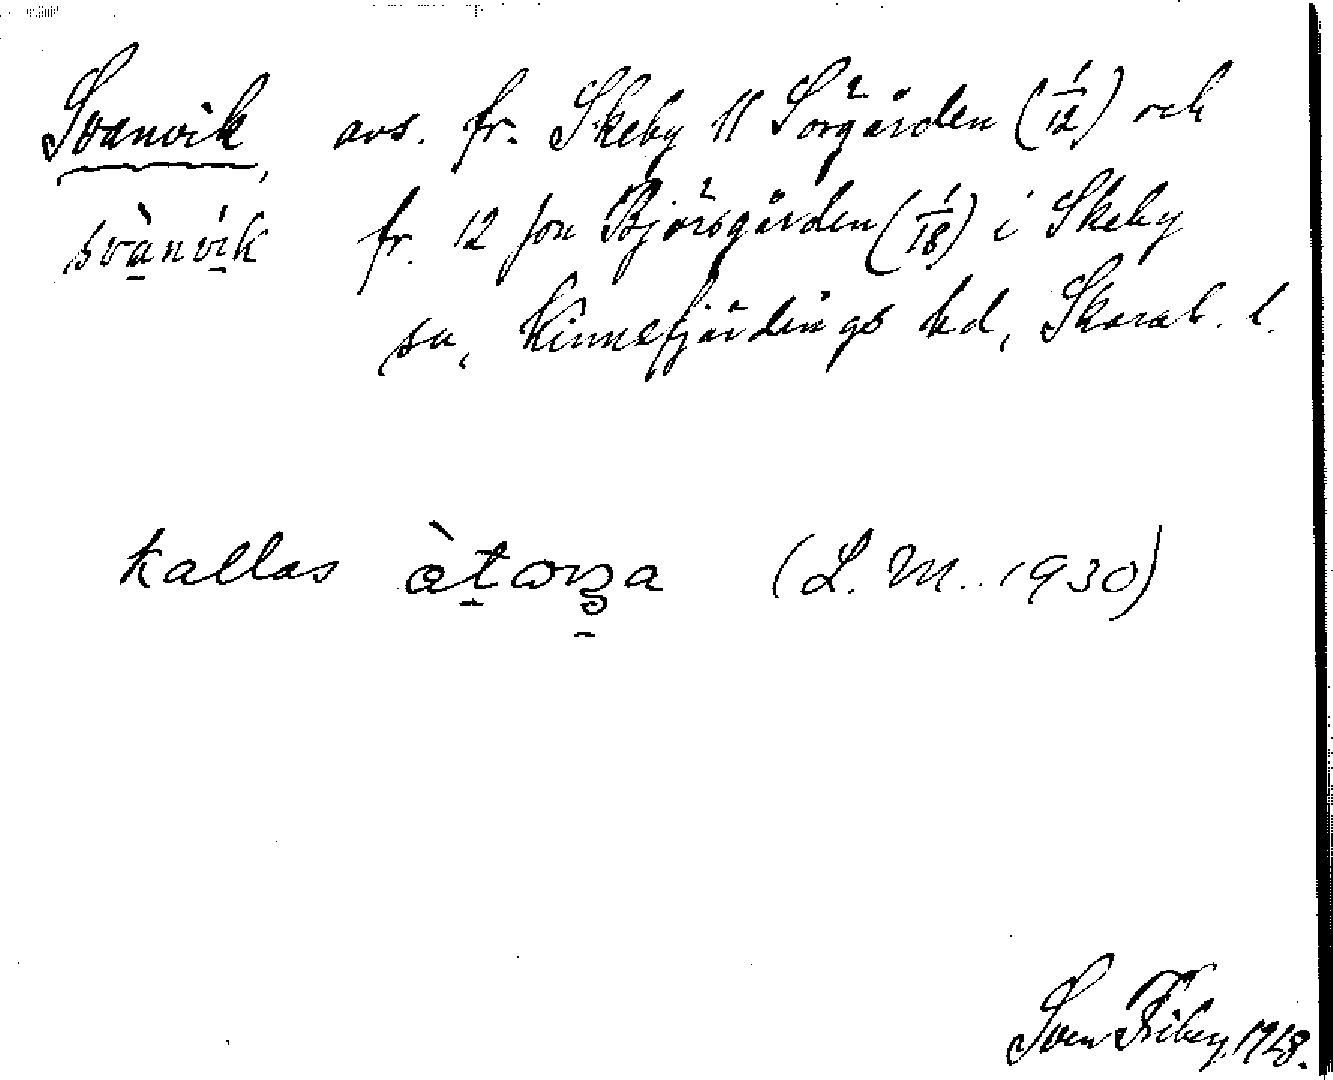 Svanvik, avs. fr. Skeby 11 Sörgården (1/12) och
svànvík fr. 12 Jon Björsgården (1/18) i Skeby
sn, Kinnefjärdings hd, Skarab. l.
kallas (L. M. 1930)
Sven Friberg, 1928.